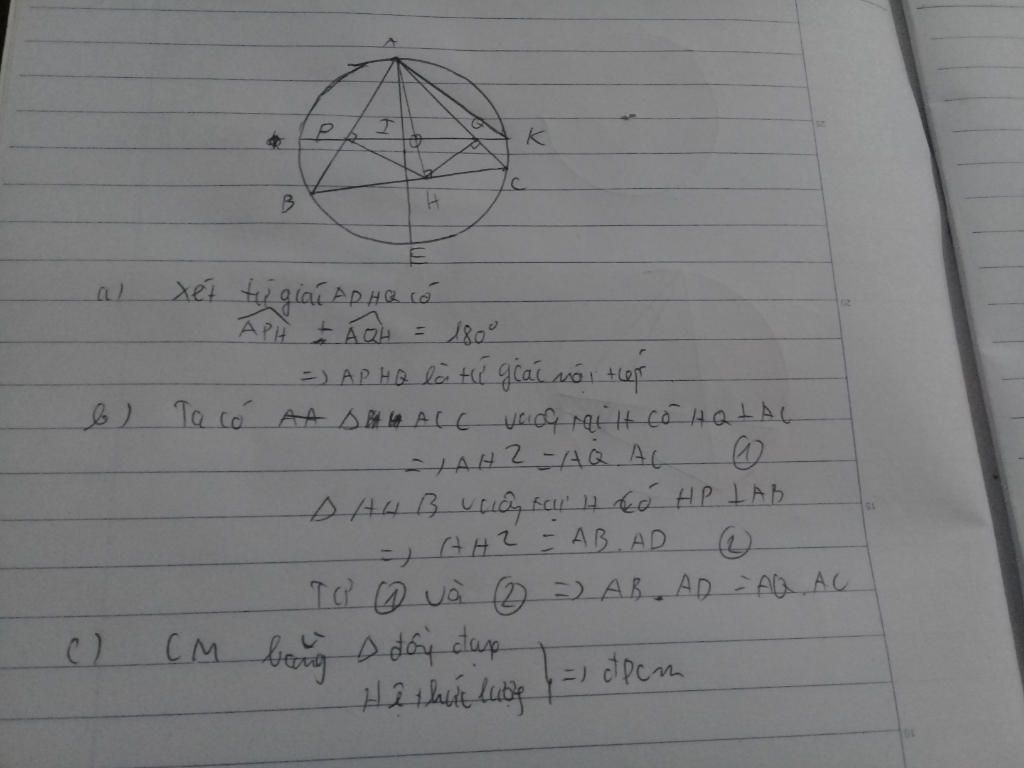 A
P I O Q K
B H C
E
a) Xét tứ giác APHQ có
APH + AQH = 180°
=> APHQ là tứ giác nội tiếp
b) Ta có Δ ACC vuông tại H có HQ ⊥ AC
=> AH² = AQ.AC ①
Δ AHB vuông tại H có HP ⊥ AB
=> AH² = AB.AD ②
Từ ① và ② => AB.AD = AQ.AC
c) CM bằng Δ đồng dạng
Hệ thức lượng => đpcm